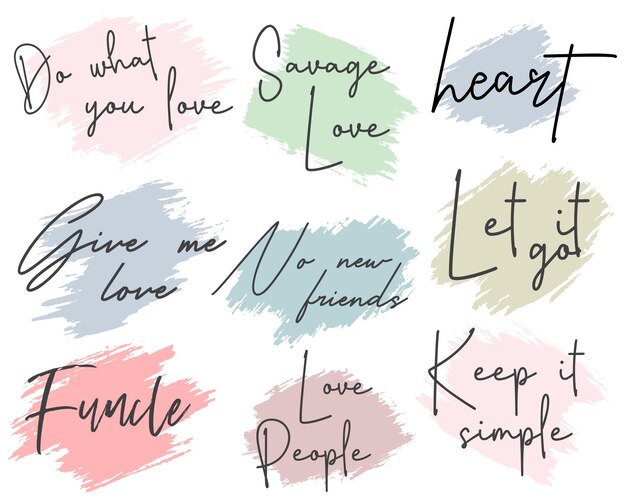 Do what
you love
Savage
Love
heart
Give me
love
No new
friends
Let it
got
Funcle
Love
People
Keep it
simple